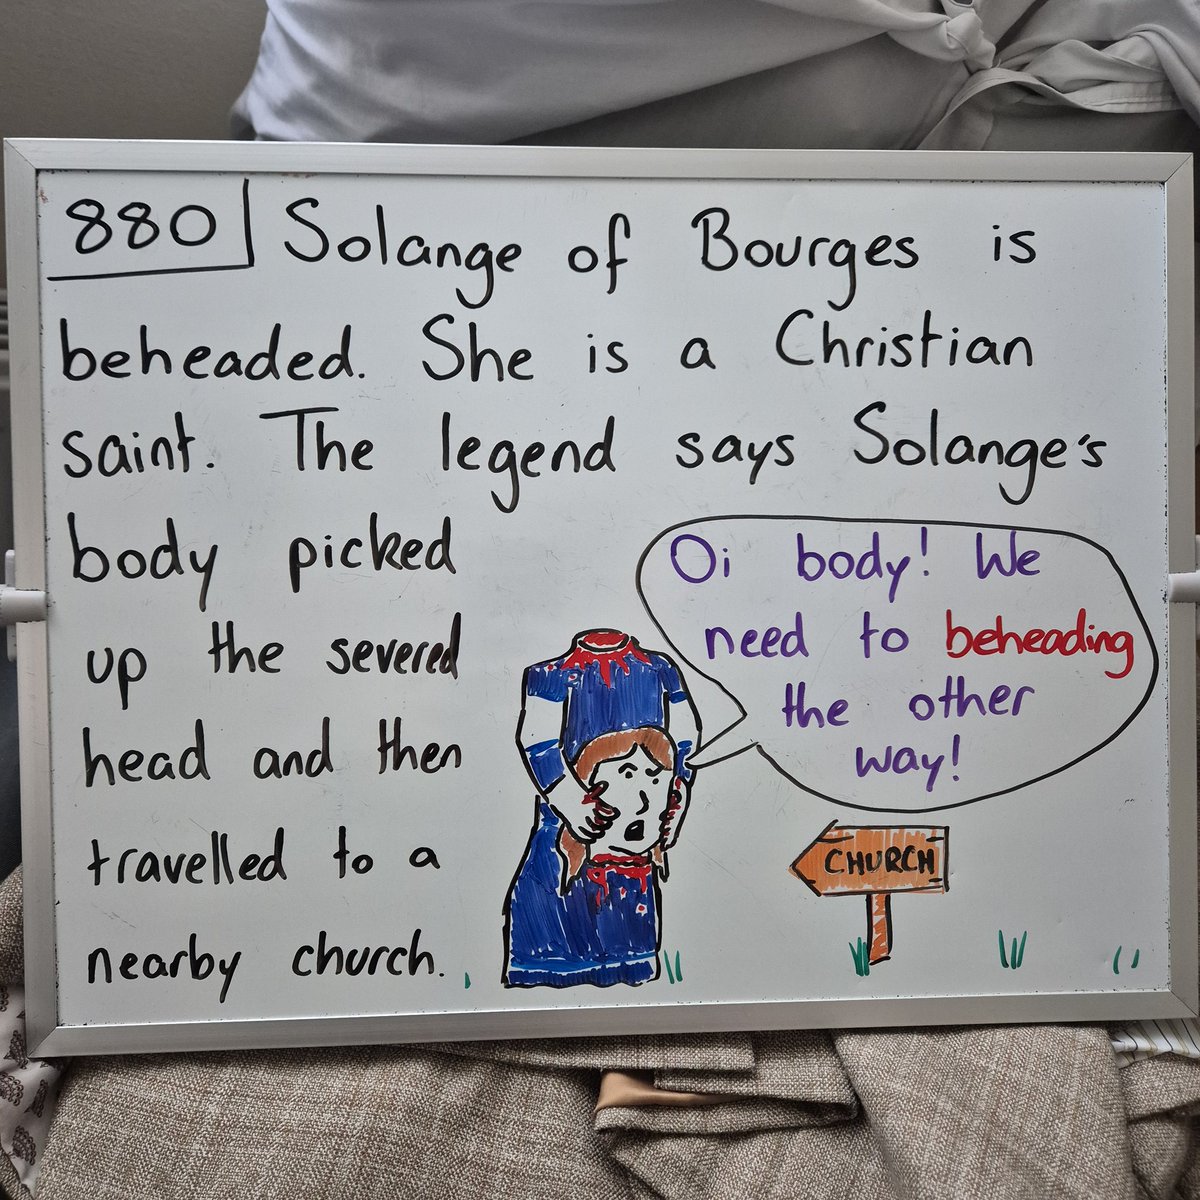 880 Solange of Bourges is
beheaded. She is a Christian
saint. The legend says Solange's
body picked
up the severed
head and then
travelled to a
nearby church.
Oi body! We
need to beheading
the other
way!
CHURCH